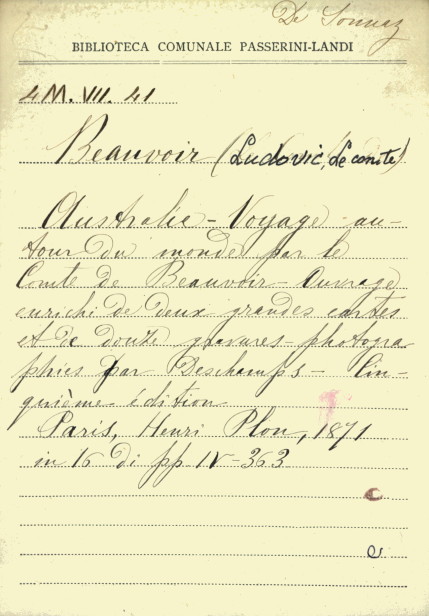 De Sonnaz
BIBLIOTECA COMUNALE PASSERINI-LANDI
4 M. VII. 41
Beauvoir (Ludovic, le comte)
Australie - Voyage au-
tour du monde par le
Comte de Beauvoir - Ouvrage
enrichi de deux grandes cartes
et de douze gravures-photogra
phies par Deschamps - Cin-
quième édition
Paris, Henri Plon, 1871
in 16 di pp IV-363